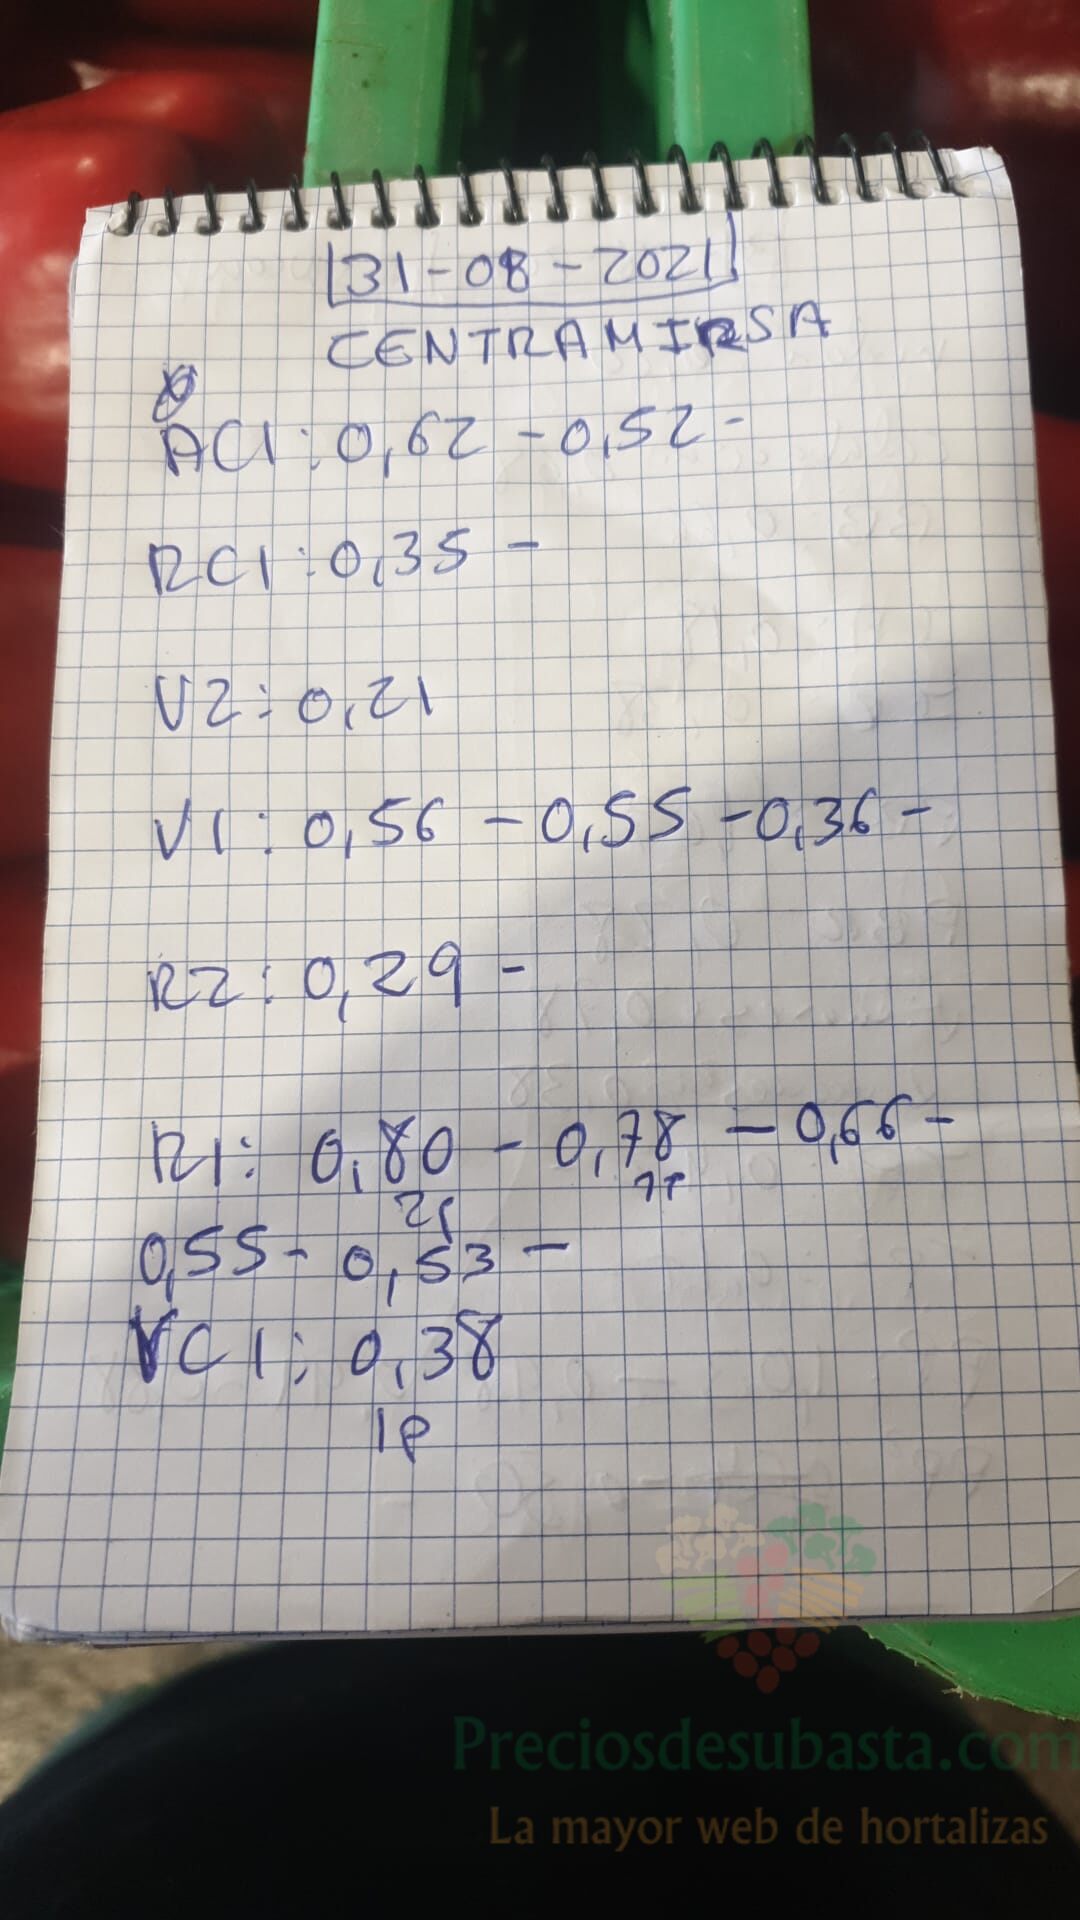 31-08-2021
CENTRAMIRSA
AC1: 0,62 - 0,52 -
RC1: 0,35 -
V2: 0,21
V1: 0,56 - 0,55 - 0,36 -
R2: 0,29 -
R1: 0,80 - 0,78 - 0,66 -
0,55 - 0,53 -
VC1: 0,38
1P
Preciosdesubasta.com
La mayor web de hortalizas